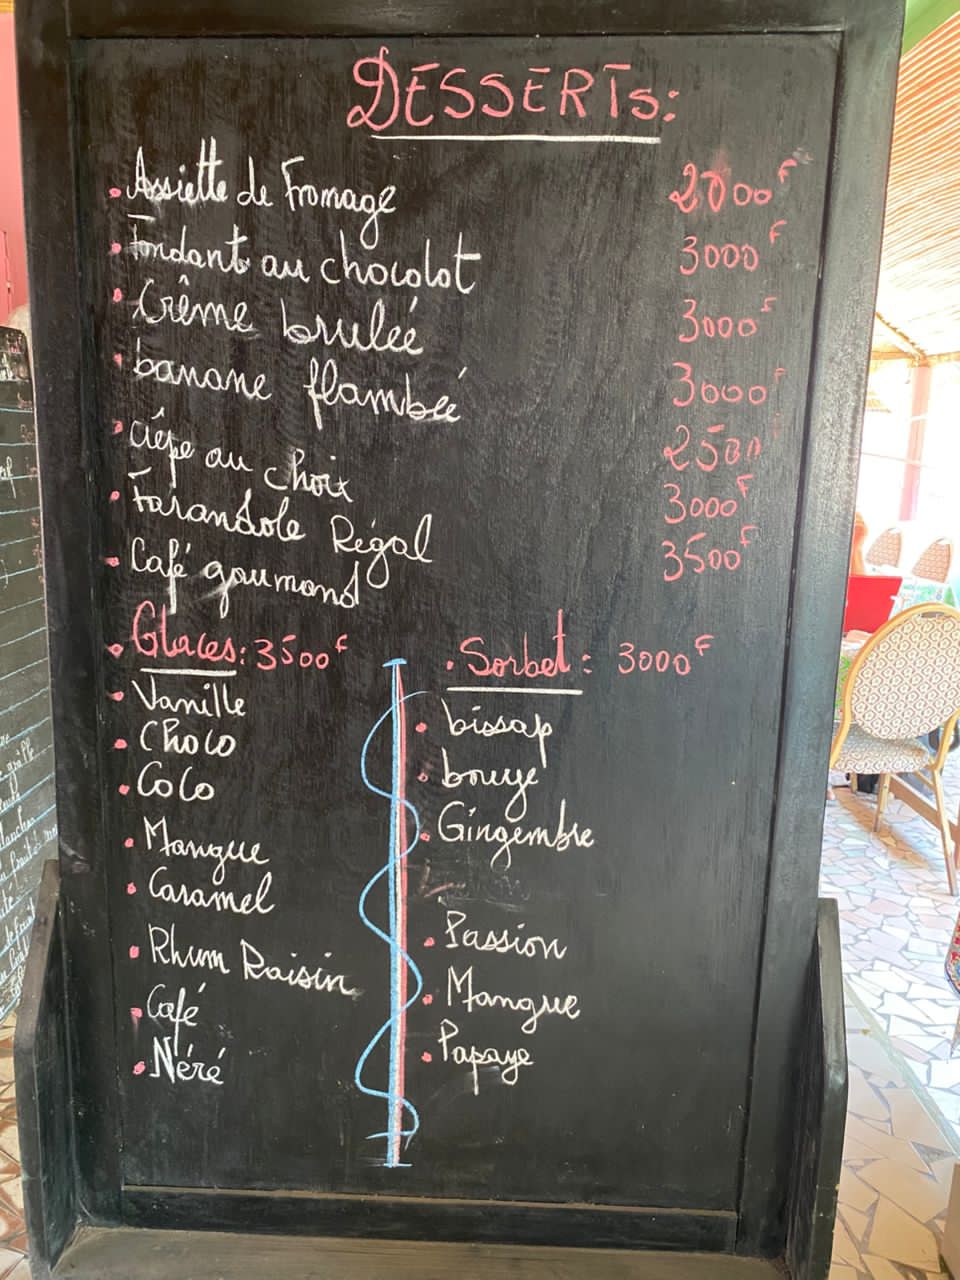 DESSERTS:
• Assiette de Fromage 2700 F
• Fondant au chocolat 3000 F
• Crême bruleé 3000 F
• banane flambée 3000 F
• Crêpe au choix 2500 F
• Farandole Régal 3000 F
• Café gourmand 3500 F
• Glaces: 3500 F
• Vanille
• Choco
• Coco
• Mangue
• Caramel
• Rhum Raisin
• Café
• Néré
• Sorbet: 3000 F
• bissap
• bouye
• Gingembre
• Passion
• Mangue
• Papaye